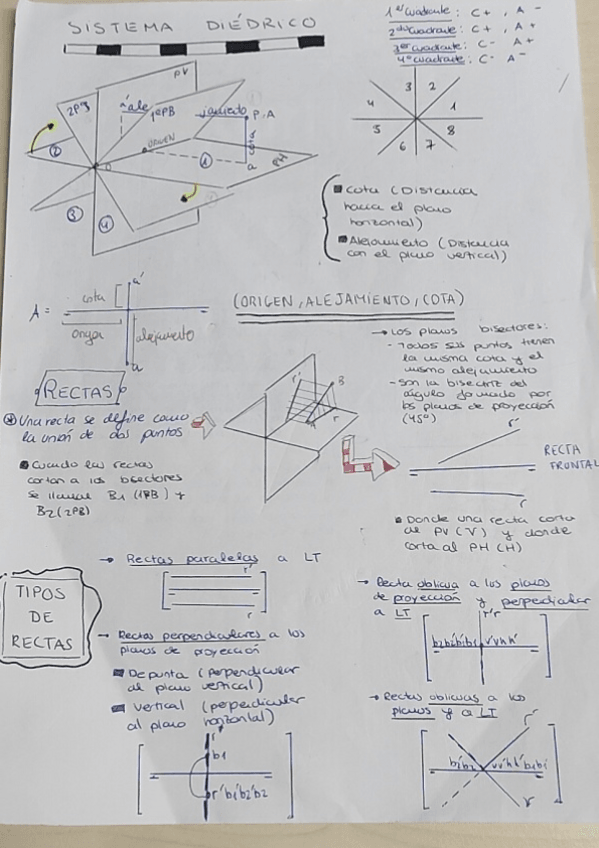 SISTEMA DIÉDRICO
1er cuadrante: C+, A-
2do cuadrante: C+, A+
3er cuadrante: C- A+
4o cuadrante: C- A-
PV
2PB
1ePB
P.A
cota
ORIGEN
O
a
PH
1
2
3
4
3 2
4 1
5 8
6 7
Cota (Distancia
hacia el plano
horizontal)
Alejamiento (Distancia
con el plano vertical)
A =
cota
a'
origen
alejamiento
a
(ORIGEN, ALEJAMIENTO, COTA)
→ Los planos bisectores:
- Todos sus puntos tienen
la misma cota y el
mismo alejamiento
- Son la bisectriz del
ángulo formado por
los planos de proyección
(45º)
RECTAS
Una recta se define como
la unión de dos puntos
Cuando las rectas
cortan a los bisectores
se llaman B1 (1PB) y
B2 (2PB)
r'
B
A
r
r'
RECTA
FRONTAL
r
Donde una recta corta
al PV (V) y donde
corta al PH (H)
TIPOS
DE
RECTAS
→ Rectas paralelas a LT
r'
r
→ Rectas perpendiculares a los
planos de proyección
De punta (perpendicular
al plano vertical)
Vertical (perpendicular
al plano horizontal)
r'
b1
r'b1'b2'b2
→ Recta oblicua a los planos
de proyección y perpendicular
a LT
r'r
b2b2'b1'b1 v'vhh'
→ Rectas oblicuas a los
planos y a LT
r'
b2'b2 vv'hh'b1b1'
r